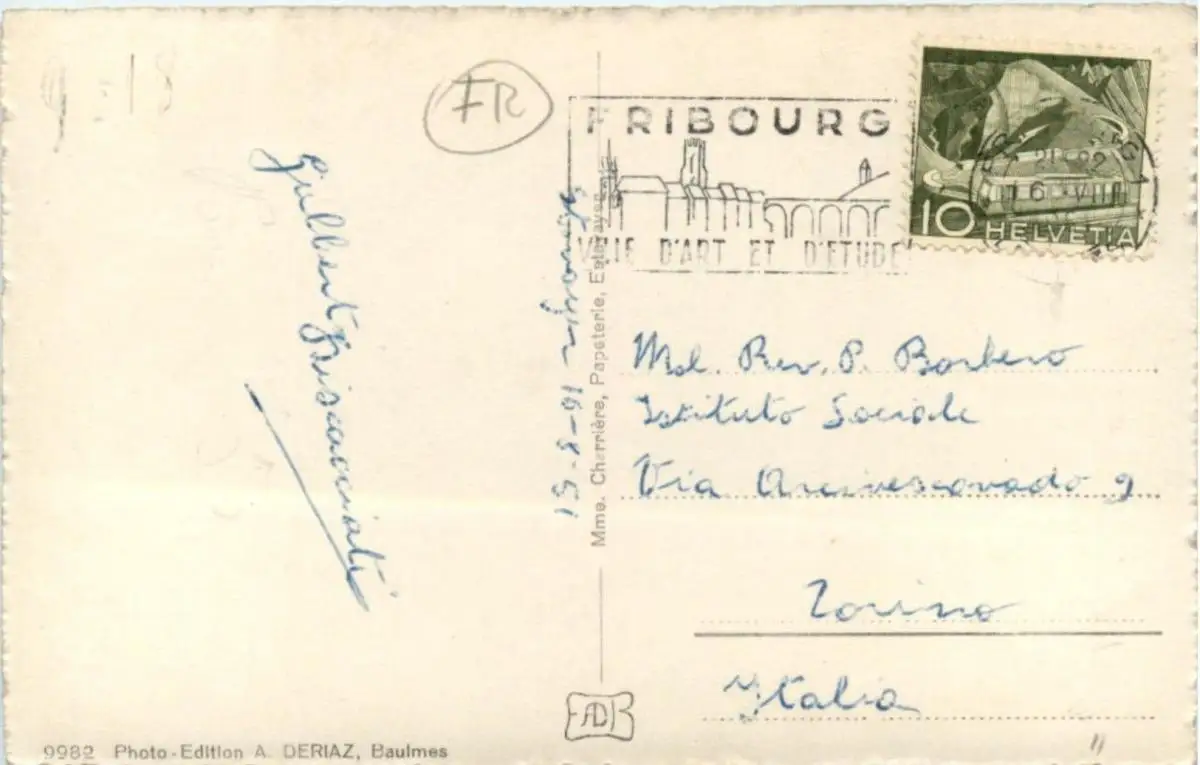 FR
FRIBOURG
VILLE D'ART ET D'ETUDE
10 HELVETIA
16 VIII
Mme. Charrière, Papeterie, Estavayer
16-8-51
Mol. Rev. P. Barbero
Istituto Sociale
Via Arcivescovado 9
Torino
Italia
Gilbert
AD
9982 Photo-Edition A. DERIAZ, Baulmes